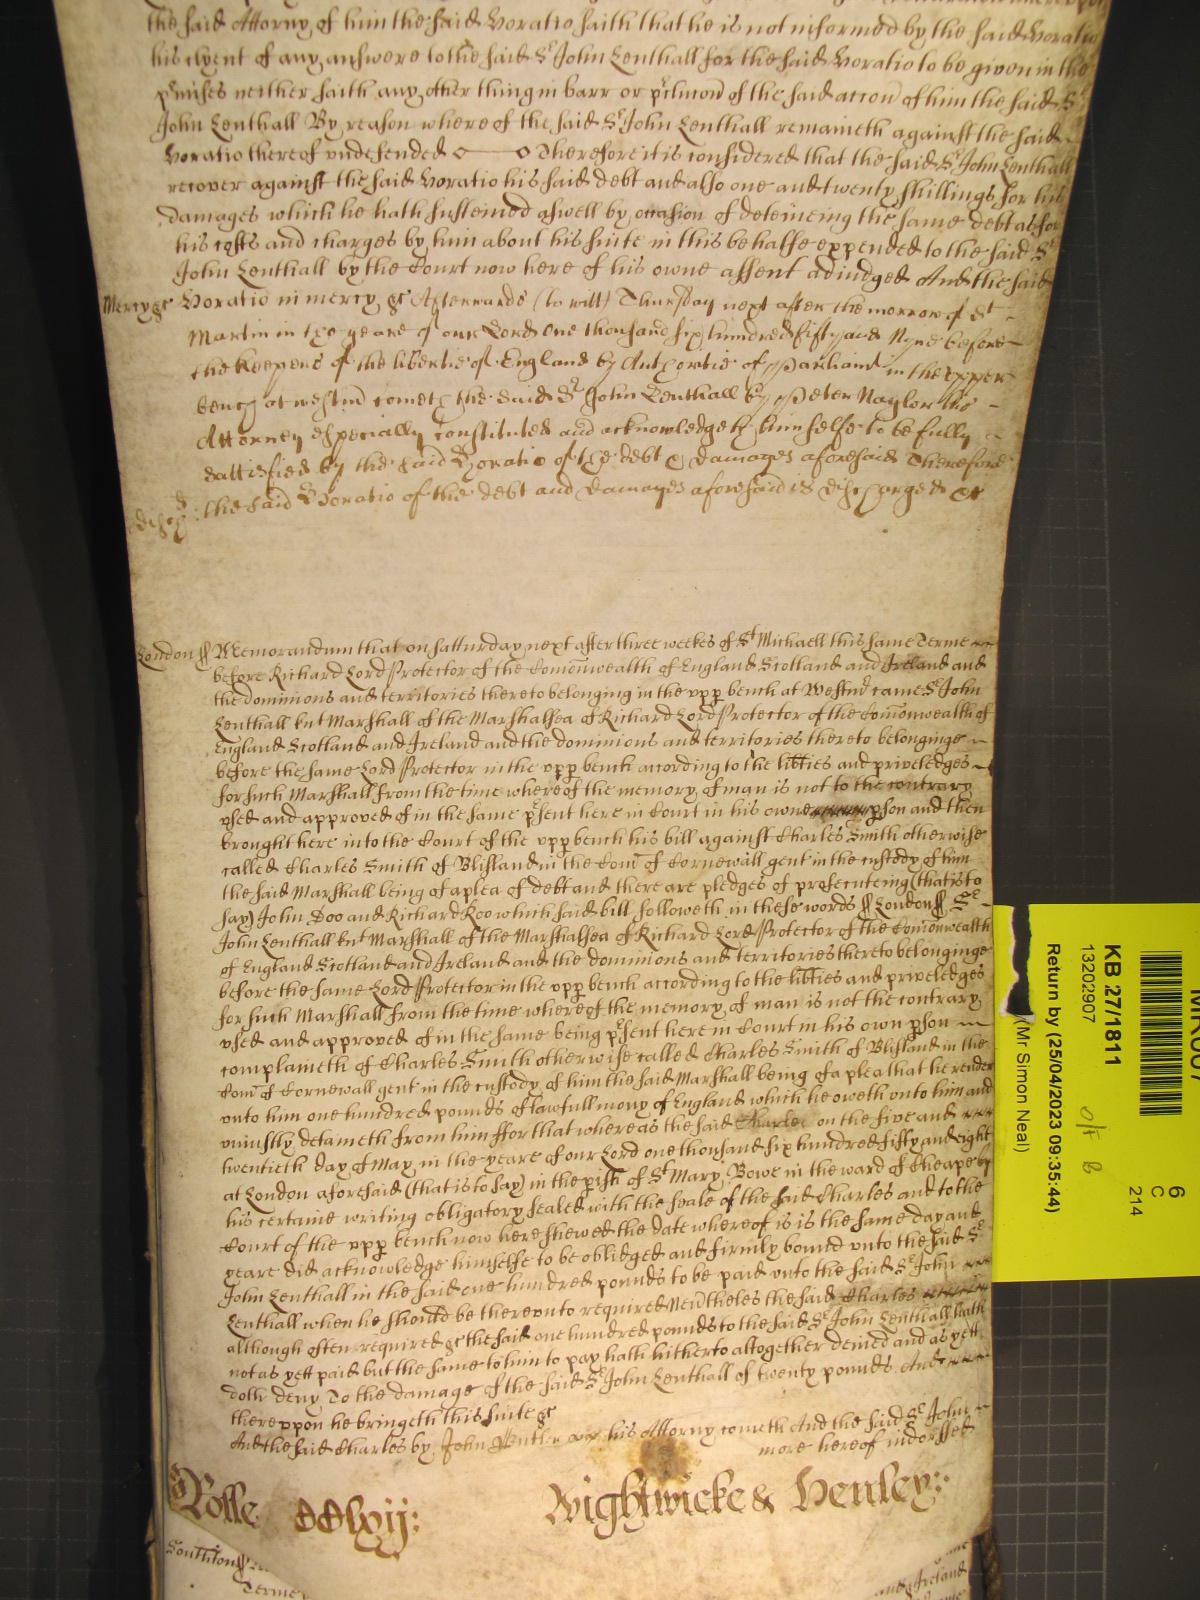 the said Attorny of him the said Horatio saith that he is not informed by the said Horatio
his clyent of any answere to the said Sr John Lenthall for the said Horatio to be given in the
pmises neither saith any other thing in barr or pclusion of the said accon of him the said Sr
John Lenthall By reason whereof the said Sr John Lenthall remaineth against the said
Horatio thereof undefended Therefore it is considered that the said Sr John Lenthall
recover against the said Horatio his said debt and also one and twenty shillings for his
damages which he hath susteined aswell by occasion of deteineing the same debt as for
his costs and charges by him about his suite in this behalfe expended to the said Sr
John Lenthall by the Court now here of his owne assent adiudged And the said
Mercy &c Horatio in mercy &c Afterwards (to witt) Thursday next after the morrow of St
Martin in the yeare of our Lord one thousand six hundred fifty and Nyne before
the Keepers of the libertie of England by Authoritie of Parliamt in the upper
bench at westmr cometh the said Sr John Lenthall by Peter Naylor his
Attorney especially constituted and acknowledgeth himselfe to be fully
sattisfied by the said Horatio of the debt & damages aforesaid Therefore
the said Horatio of the debt and damages aforesaid is discharged &c
London ss Memorandum that on satturday next after three weekes of St Michaell this same Terme
before Richard Lord Protector of the Comonwealth of England Scotland and Ireland and
the dominions and territories thereto belonging in the upp bench at Westmr came Sr John
Lenthall knt Marshall of the Marshalsea of Richard Lord Protector of the Comonwealth of
England Scotland and Ireland and the dominions and territories thereto belonginge
before the same Lord Protector in the upp bench according to the libties and priveledges
for such Marshall from the time whereof the memory of man is not to the contrary
used and approved of in the same psent here in Court in his owne pson and then
brought here into the Court of the upp bench his bill against Charles Smith otherwise
called Charles Smith of Blisland in the Com of Cornewall gent in the custody of him
the said Marshall being of a plea of debt and there are pledges of prosecuteing (that is to
say) John Doo and Richard Roo which said bill followeth in these words ss London ss Sr
John Lenthall knt Marshall of the Marshalsea of Richard Lord Protector of the Comonwealth
of England Scotland and Ireland and the dominions and territories thereto belonginge
before the same Lord Protector in the upp bench according to the libties and priveledges
for such Marshall from the time whereof the memory of man is not the contrary
used and approved of in the same being psent here in Court in his own pson
complaineth of Charles Smith otherwise called Charles Smith of Blisland in the
Com of Cornewall gent in the custody of him the said Marshall being of a plea that he render
unto him one hundred pounds of lawfull mony of England which he oweth unto him and
uniustly detaineth from him ffor that whereas the said Charles on the five and
twentieth day of May in the yeare of our Lord one thousand six hundred fifty and eight
at London aforesaid (that is to say) in the pish of St Mary Bowe in the ward of Cheape by
his certaine writing obligatory sealed with the seale of the said Charles and to the
Court of the upp bench now here shewed the date whereof is is the same day and
yeare did acknowledge himselfe to be obliged and firmly bound unto the said Sr
John Lenthall in the said one hundred pounds to be paid unto the said Sr John
Lenthall when he should be thereunto required Nevtheles the said Charles
although often required &c the said one hundred pounds to the said Sr John Lenthall hath
not as yett paid but the same to him to pay hath hitherto altogether denied and as yett
doth deny To the damage of the said Sr John Lenthall of twenty pounds And
thereuppon he bringeth this suite &c
And the said Charles by John his Attorny cometh And the said Sr John
more hereof indorssed
Rolle
Wightwicke & Henley:
Southton ss
Terme
and Ireland
KB 27/1811
13202907
Return by (25/04/2023 09:35:44)
(Mr Simon Neal)
6
C
214